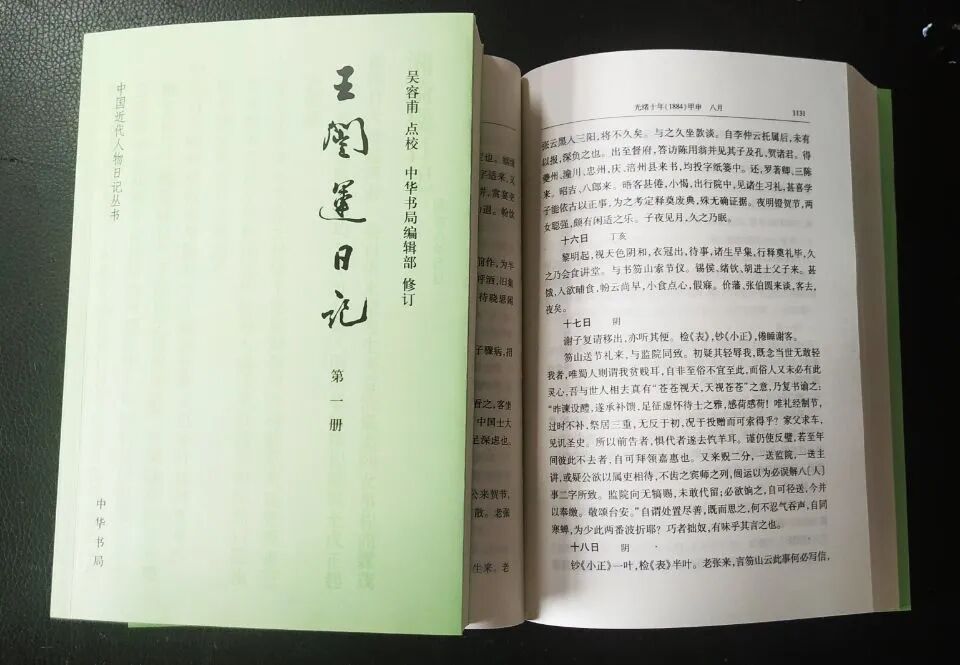 中国近代人物日记丛书
王闿运日记
第一册
吴容甫 点校 中华书局编辑部 修订
中华书局
光绪十年(1884)甲申 八月
1131
张云黑人三阳，将不久矣。与之久坐款谈。自李仲云托属后，未有
以报，深负之也。出至督府，答访陈用翁并见其子及孔、贺诸君。得
夔州、潼川、忠州、庆、涪州县来书，均投字纸篓中。还，罗著卿、三陈
来。昭吉、八郎来。晤客县倦，小惕，出行院中，见诸生习礼，甚喜学
子能依古以正事，为之考定释奠废典，殊无确证据。夜明镫贺节，两
女聪强，颇有闲适之乐。子夜见月，久之乃眠。
十六日 丁亥
黎明起，视天色阴和，衣冠出，待事，诸生早集，行释奠礼毕，久
之乃会食讲堂。与书笏山索节仪。锡侯、绪钦、胡进士父子来。甚
饿，入欲晡食，粉云尚早，小食点心，假寐。价藩、张伯圆来谈，客去，
夜矣。
十七日 阴
谢子复请移出，亦听其便。检《表》，钞《小正》，倦睡谢客。
笏山送节礼来，与监院同致。初疑其轻辱我，既念当世无敢轻
我者，唯蜀人则谓我贫贱耳，自非至俗不宜至此，而俗人又未必有此
灵心，吾与世人相去真有“苍苍视天，天视苍苍”之意，乃复书谕之：
“昨谏设醴，遂承补馈，足征虚怀待士之雅，感荷感荷！唯礼经制节，
过时不补，祭居三重，无反于初，况于投赠而可索得乎？家父求车，
见讥圣史。所以前告者，惧代者遂去饩羊耳。谨仍使反璧，若至年
间彼此不去者，自可拜领嘉惠也。又来贶二分，一送监院，一送主
讲，或疑公欲以属吏相待，不齿之宾师之列，闿运以为必误解八[人]
事二字所致。监院向无犒赐，未敢代留；必欲饷之，自可径送，今并
以奉缴。敬颂台安。”自谓处置尽善，既而思之，何不忍气吞声，自同
寒蝉，为少此两番波折耶？巧者拙奴，有味乎其言之也。
十八日 阴
钞《小正》一叶，检《表》半叶。老张来，言笏山云此事何必写信，